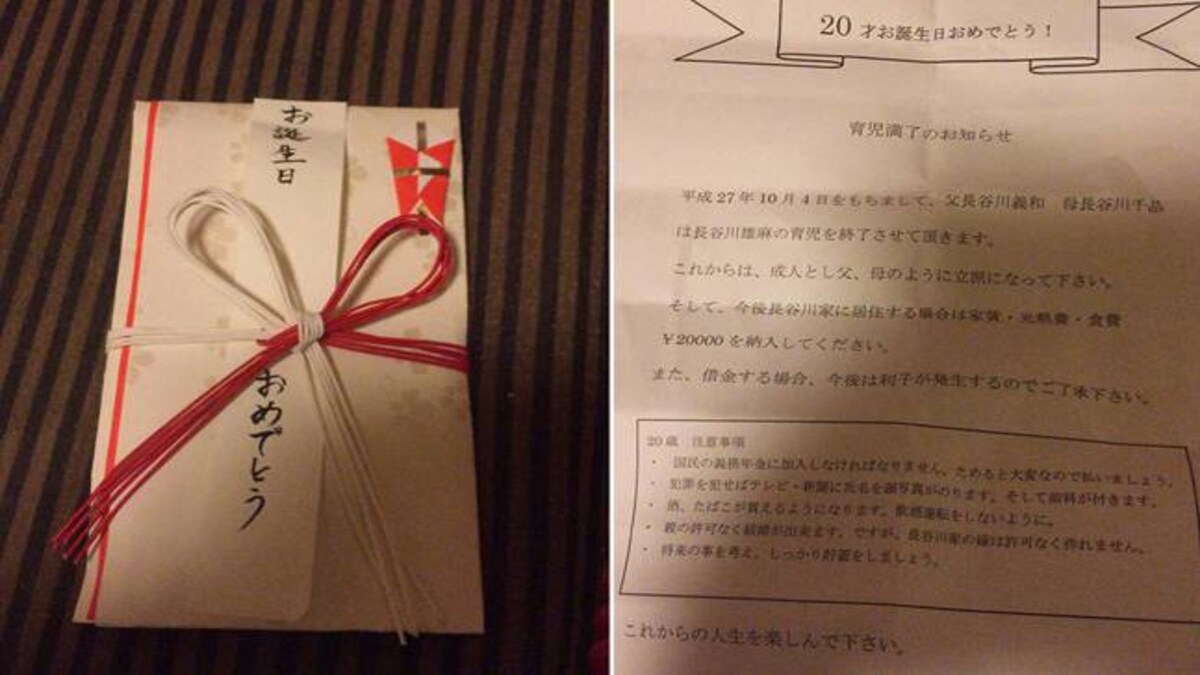 お誕生日
おめでとう
20 才お誕生日おめでとう！
育児満了のお知らせ
平成 27 年 10 月 4 日をもちまして、父長谷川義和　母長谷川千晶
は長谷川雄麻の育児を終了させて頂きます。
これからは、成人とし父、母のように立派になって下さい。
そして、今後長谷川家に居住する場合は家賃・光熱費・食費
￥20000 を納入してください。
また、借金する場合、今後は利子が発生するのでご了承下さい。
20 歳　注意事項
・ 国民の義務年金に加入しなければなりません。ためると大変なので払いましょう。
・ 犯罪を犯せばテレビ・新聞に氏名を顔写真がのります。そして前科が付きます。
・ 酒、たばこが買えるようになります。飲酒運転をしないように。
・ 親の許可なく結婚が出来ます。ですが、長谷川家の嫁は許可なく作れません。
・ 将来の事を考え、しっかり貯蓄をしましょう。
これからの人生を楽しんで下さい。